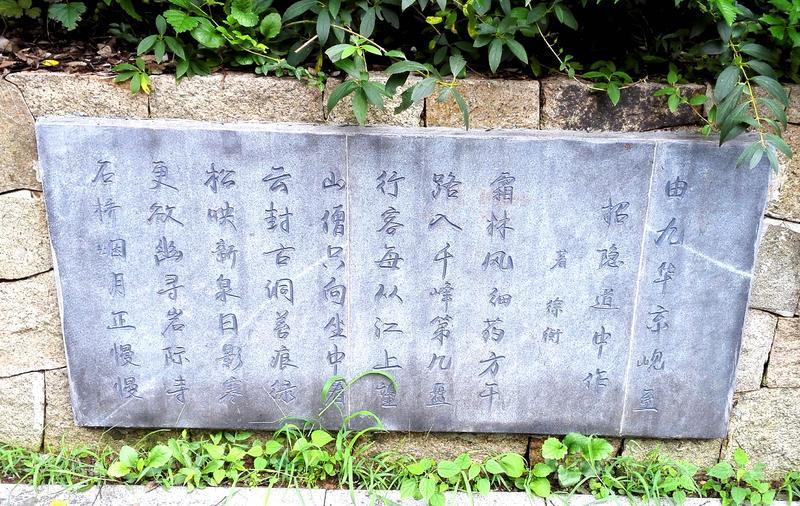 由九华京岘至
招隐道中作
著 徐衡
霜林风细药方干
路入千峰第几盘
行客每从江上望
山僧只向坐中看
云封古洞苔痕绿
松映新泉日影寒
更欲幽寻岩际寺
石桥烟月正慢慢